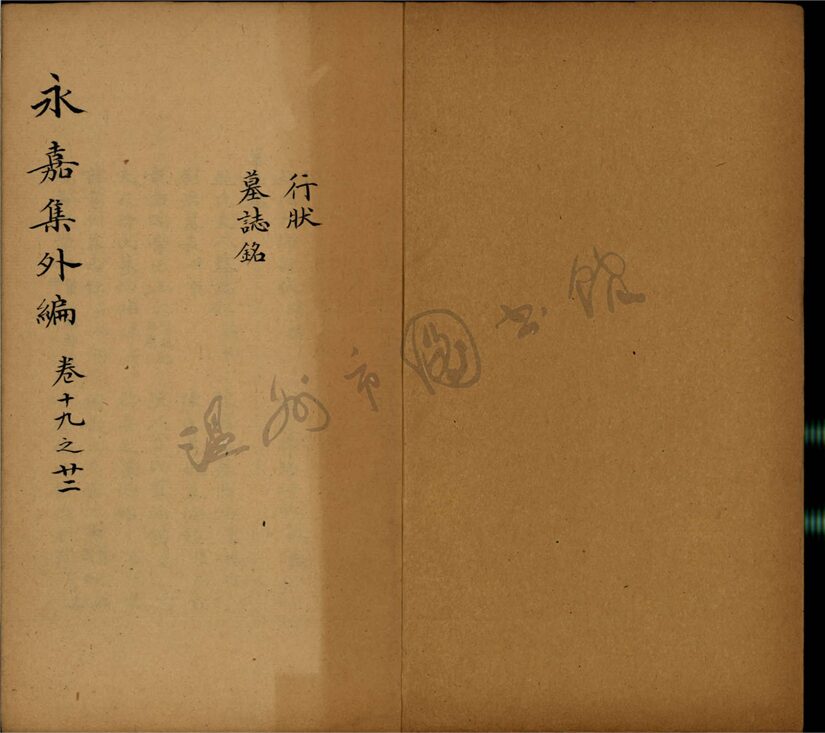 行狀
墓誌銘
永嘉集外編 卷十九之廿二
温州市圖书馆